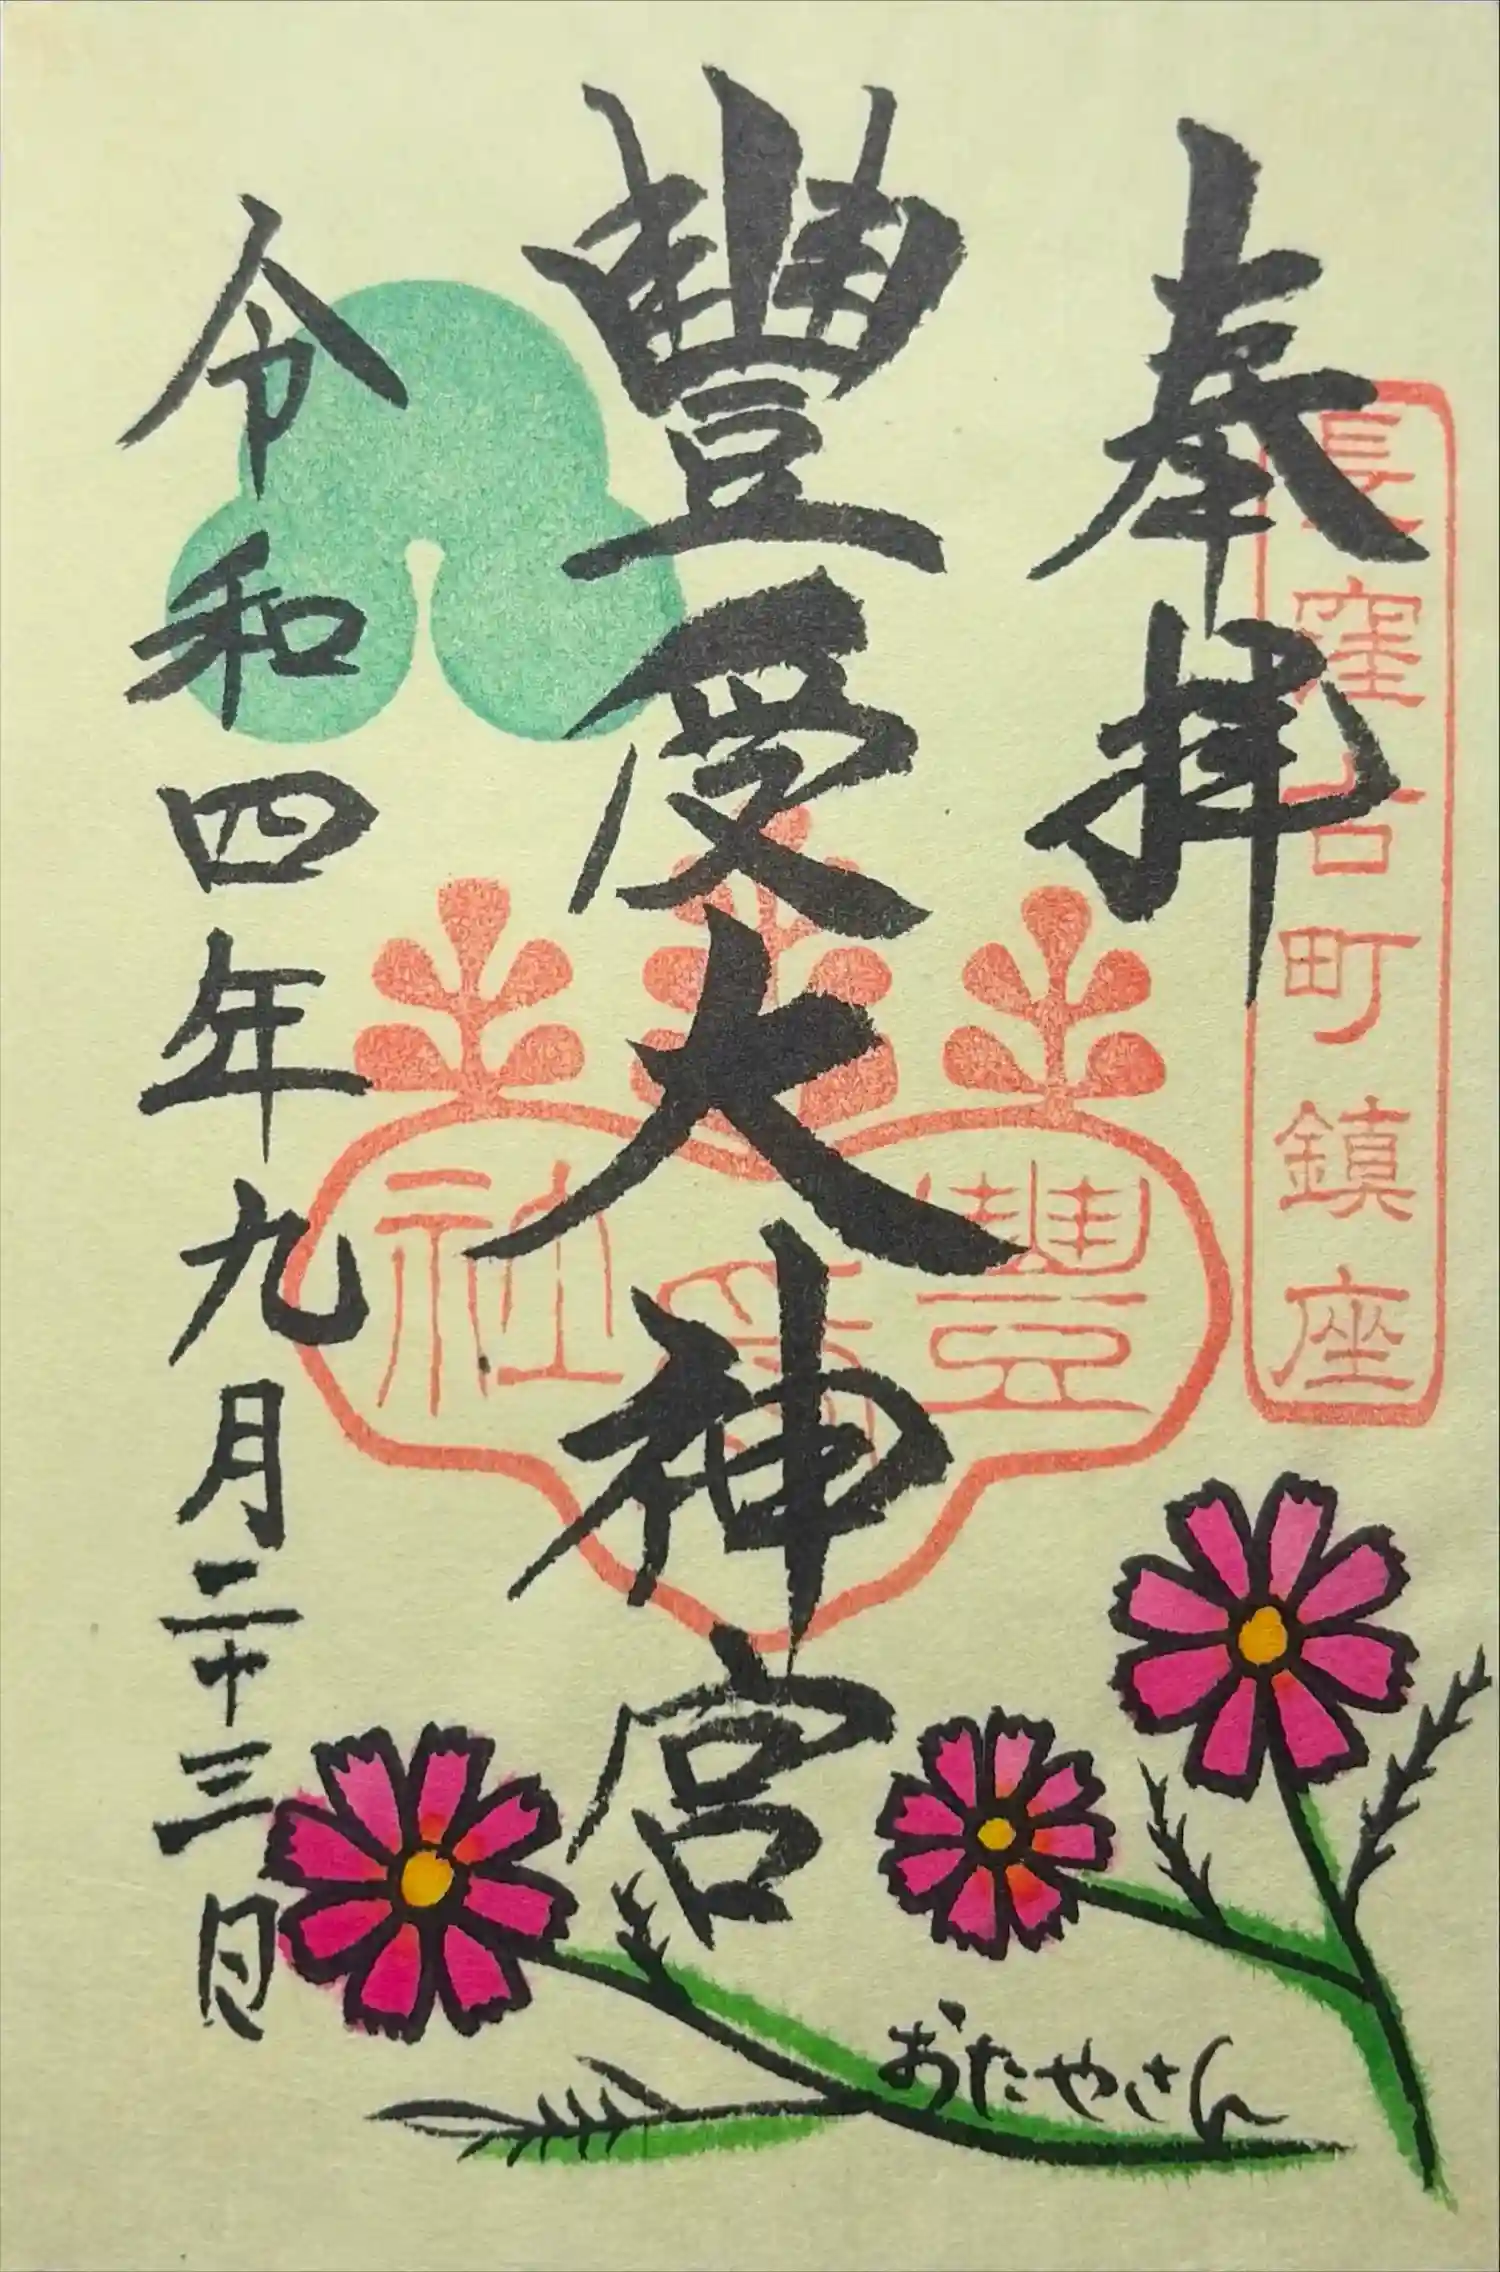 奉拝
長窪古町鎮座
豊受大神宮
豊受社
令和四年九月二十三日
おたやさん